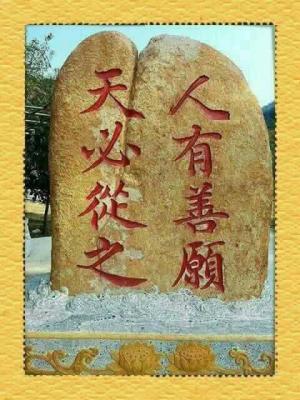 人有善願
天必從之